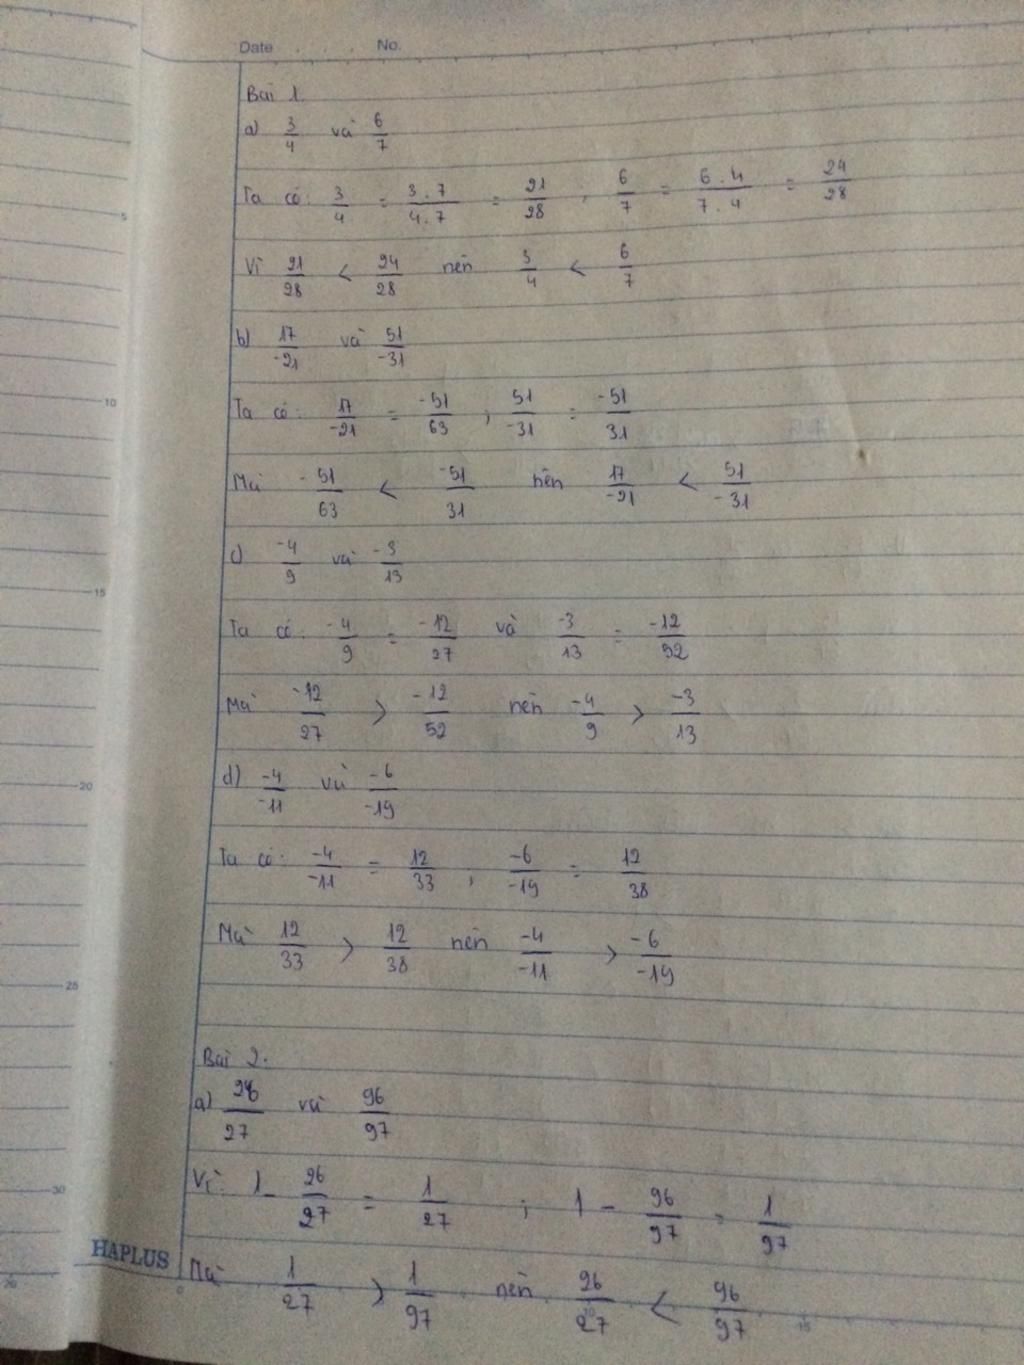 Date . . . . No.
Bài 1.
a) 3/4 và 6/7
Ta có: 3/4 = 3.7/4.7 = 21/28 ; 6/7 = 6.4/7.4 = 24/28
Vì 21/28 < 24/28 nên 3/4 < 6/7
b) 17/-21 và 51/-31
Ta có: 17/-21 = -51/63 ; 51/-31 = -51/31
Mà -51/63 < -51/31 nên 17/-21 < 51/-31
c) -4/9 và -3/13
Ta có: -4/9 = -12/27 và -3/13 = -12/52
Mà -12/27 > -12/52 nên -4/9 > -3/13
d) -4/-11 và -6/-19
Ta có: -4/-11 = 12/33 ; -6/-19 = 12/38
Mà 12/33 > 12/38 nên -4/-11 > -6/-19
Bài 2.
a) 26/27 và 96/97
Vì: 1 - 26/27 = 1/27 ; 1 - 96/97 = 1/97
HAPLUS
Mà 1/27 > 1/97 nên 26/27 < 96/97
5
10
15
20
25
30